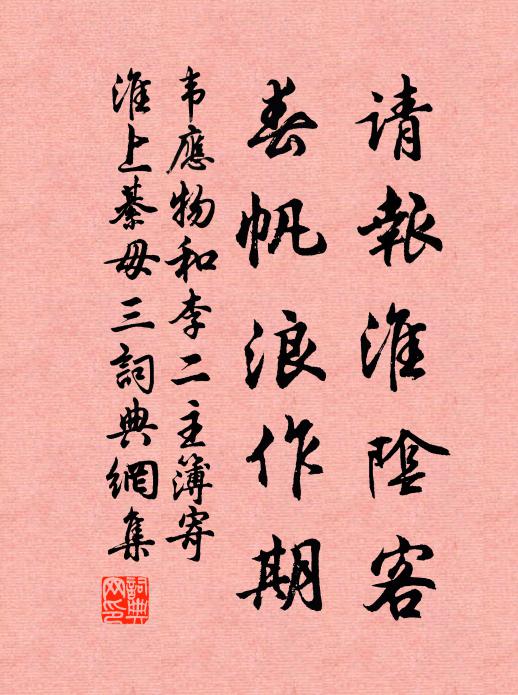 请報淮陰客
春帆浪作期
韦應物和李二主簿寄
淮上綦毋三詞典網集